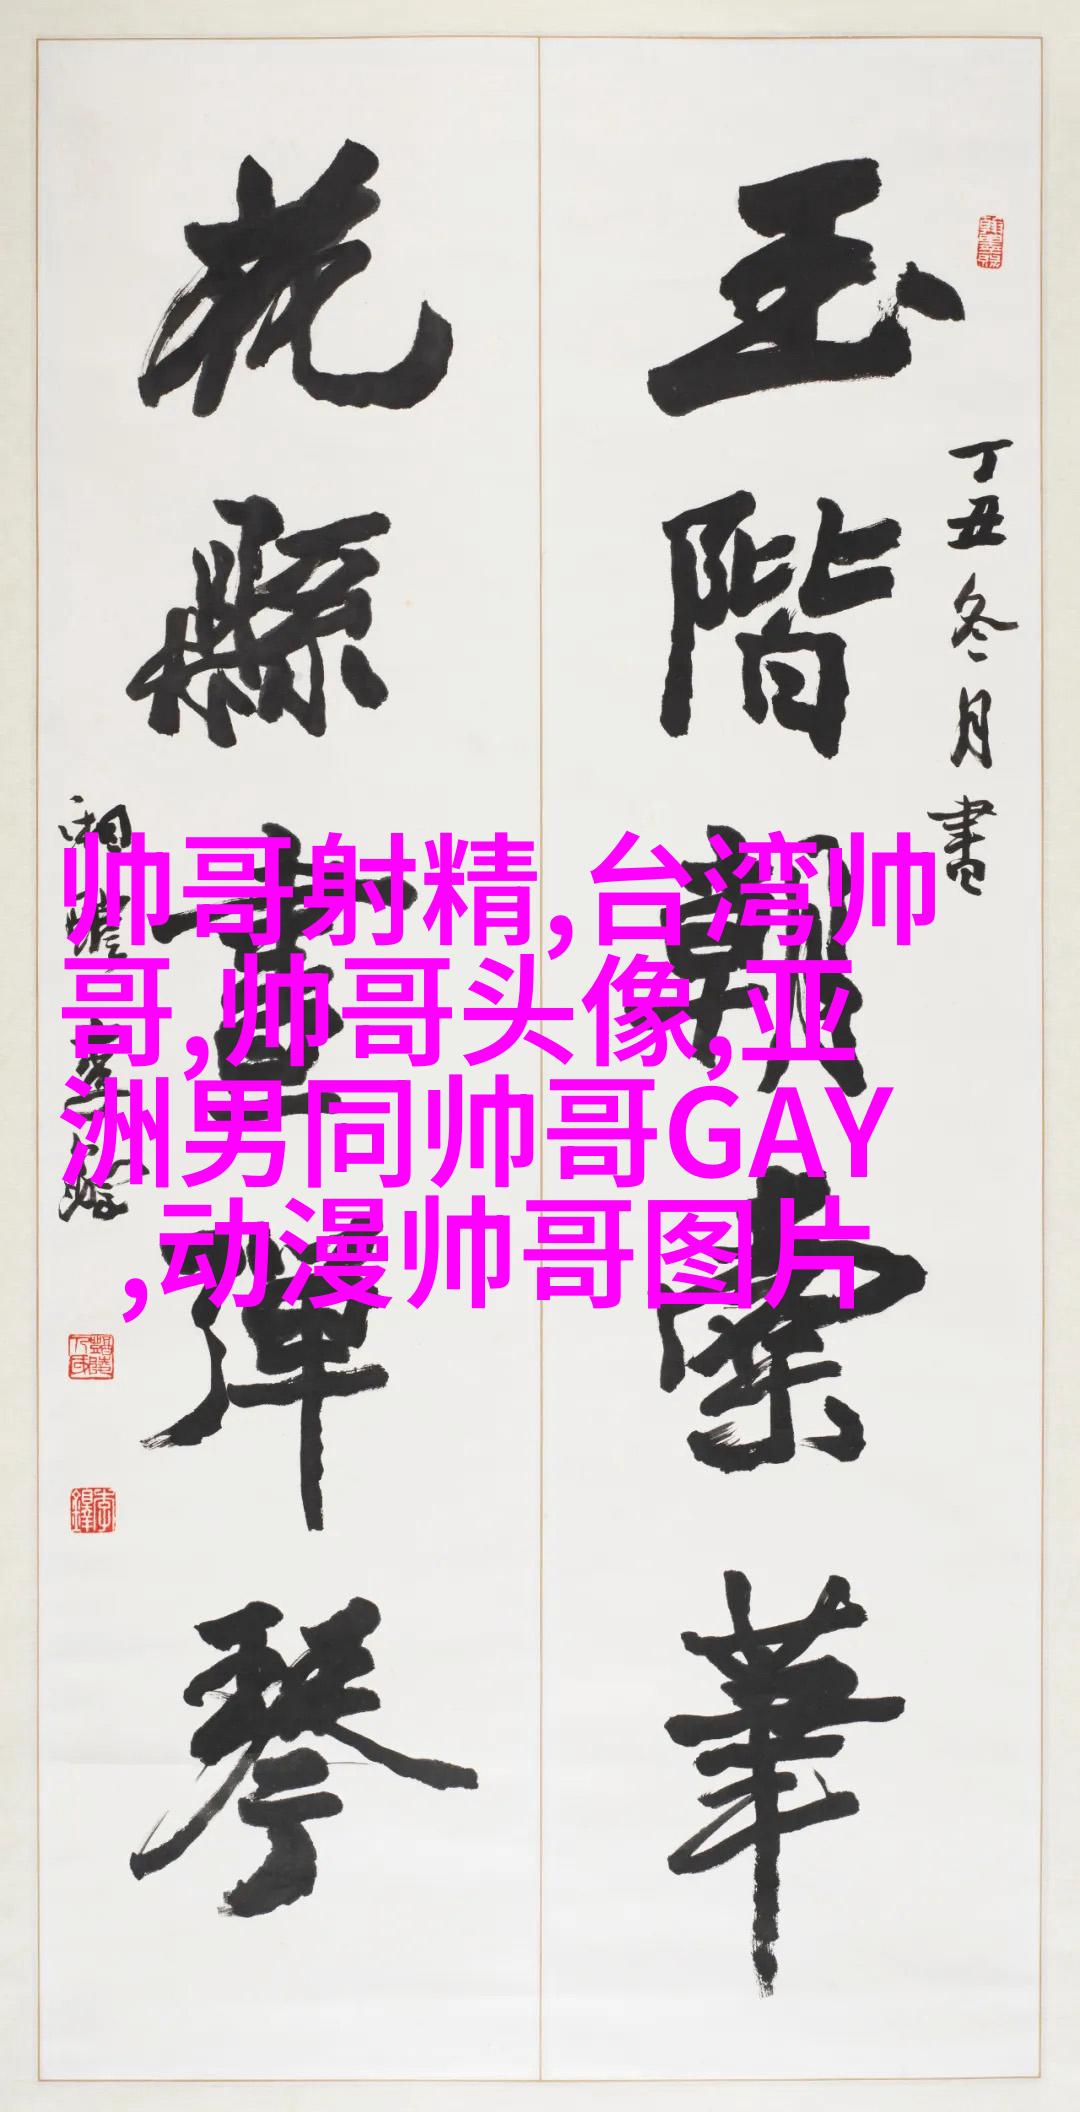 丁丑冬月書
玉階朝華
花縣晝彈琴
帅哥射精,台湾帅
哥,帅哥头像,亚
洲男同帅哥GAY
,动漫帅哥图片